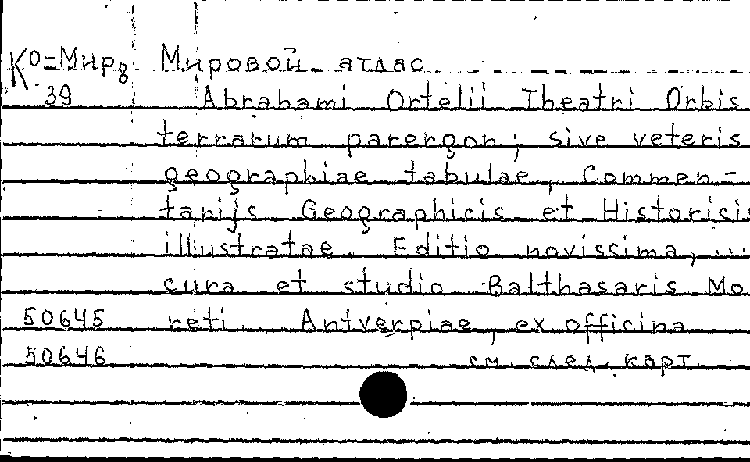 Ко=Мир8 Мировой атлас
39 Abrahami Ortelii Theatri Orbis
terrarum parergon; sive veteris
geographiae tabulae, Commen-
tarijs Geographicis et Historicis
illustratae. Editio novissima,
cura et studio Balthasaris Mo
50645 reti. Antverpiae, ex officina
50646 см. след. карт.